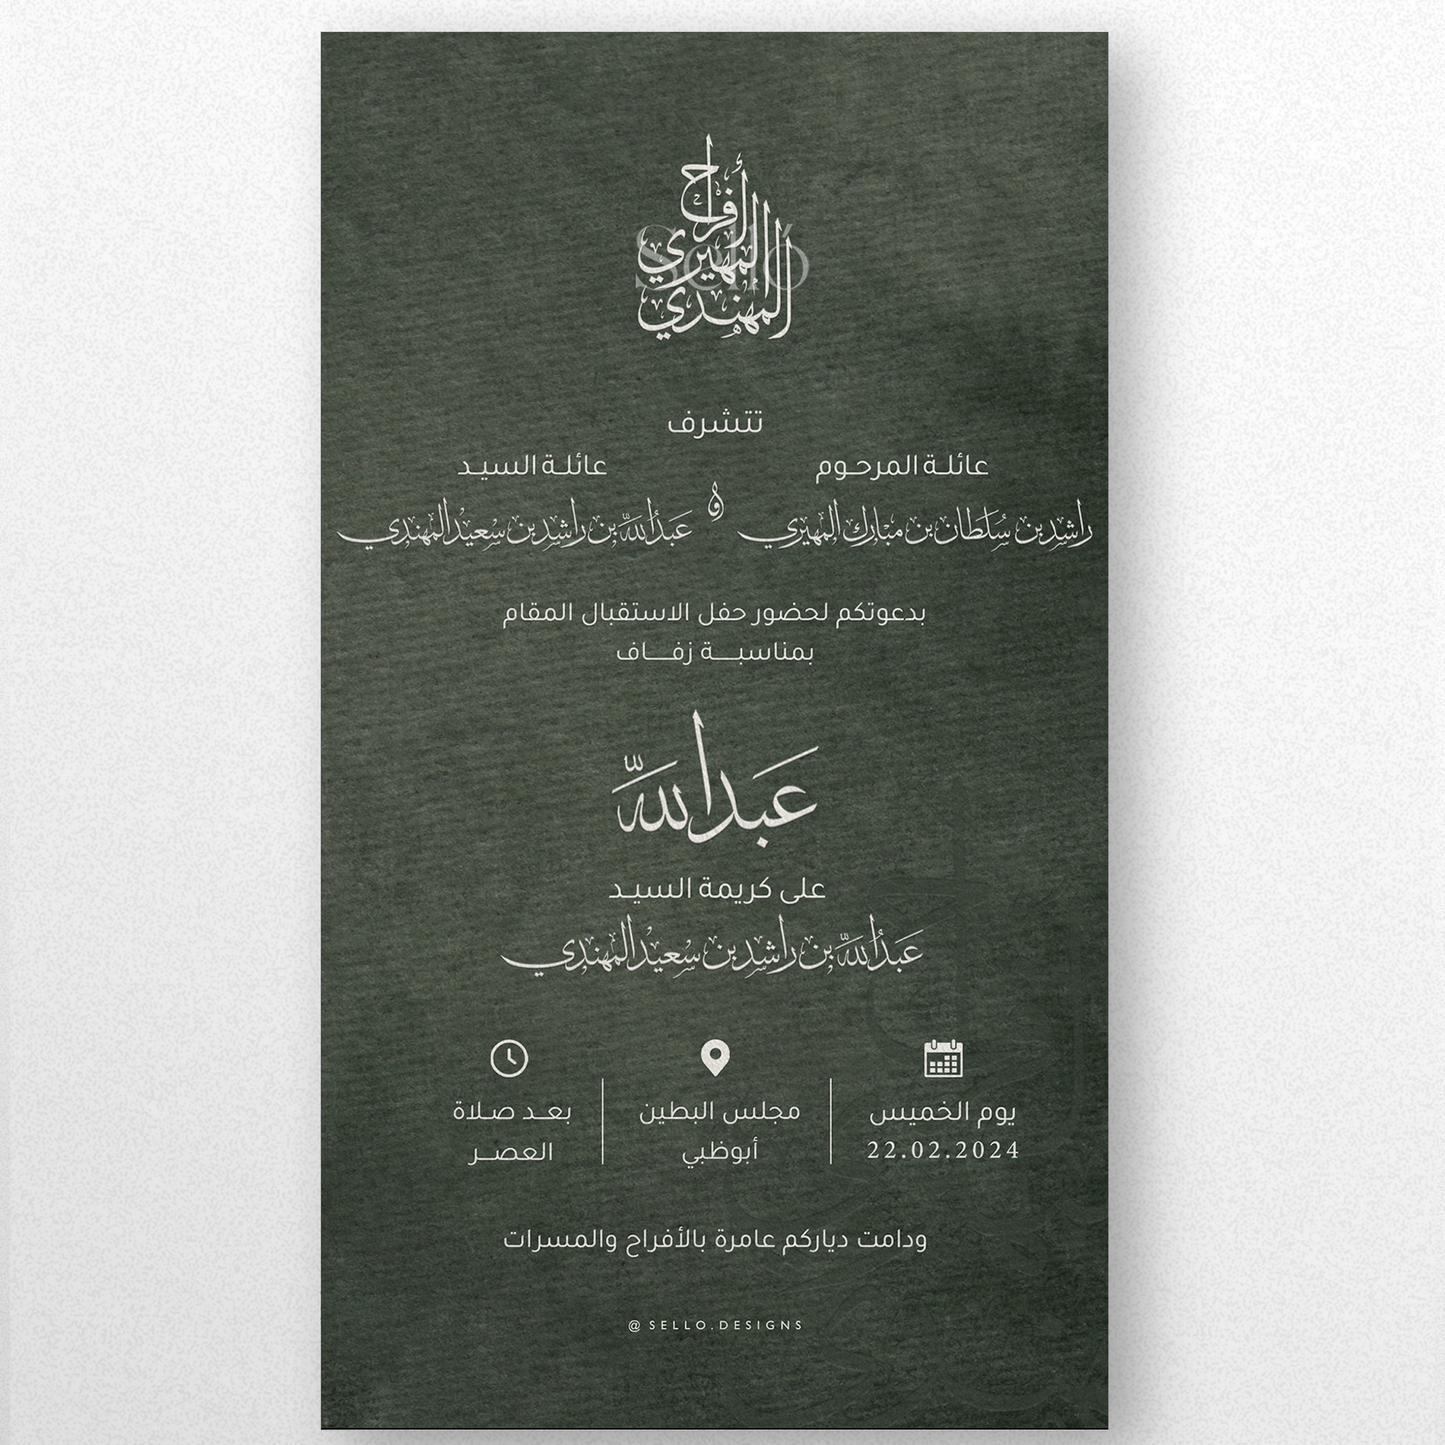 أفراح
المهيري
المهندي
Selló
تتشرف
عائلة المرحوم
راشد بن سلطان بن مبارك المهيري
و
عائلة السيد
عبدالله بن راشد بن سعيد المهندي
بدعوتكم لحضور حفل الاستقبال المقام
بمناسبة زفاف
عبدالله
على كريمة السيد
عبدالله بن راشد بن سعيد المهندي
يوم الخميس
22.02.2024
مجلس البطين
أبوظبي
بعد صلاة
العصر
ودامت دياركم عامرة بالأفراح والمسرات
@SELLO.DESIGNS